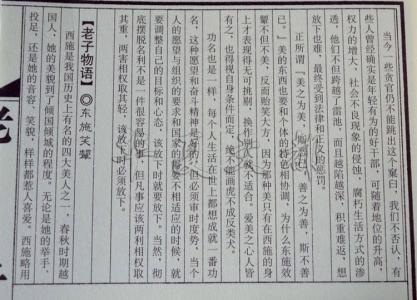 当今一些贪官仍不能跳出这个窠臼，我们不否认，有
些人曾经确实是年轻有为的好干部，可随着地位的升高，
权力的增大，社会不良现象的侵蚀，腐朽生活方式的渗
透，他们不但跨越了雷池，而且越陷越深，积重难返，想
放下也难，最终受到法律和正义的惩罚。
正所谓『美之为美，斯恶已；善之为善，斯不善
已。』美的东西也要和个体的特色相协调，为什么东施效
颦不但不美，反而贻笑大方，因为那种美只有在西施的身
上才表现得无可挑剔，换作别人就不适合。爱美之心人皆
有之，也得视自身条件而定，绝不能画虎不成反类犬。
功名也是一样，每个人生活在世上都想成就一番功
名，这种愿望和奋斗精神是好的，但必须审时度势，当个
人的愿望与组织的要求和国家的需要不相适应的时候，就
要调整自己的目标和心态，该放下时就要放下。当然，彻
底摆脱名利不是一件很容易的事，但凡事应该两利相权取
其重，两害相权取其轻，该放下时必须放下。
【老子物语】◎东施笑颦
西施是我国历史上有名的四大美人之一，春秋时期越
国人，她的美貌到了倾国倾城的程度。无论是她的举手、
投足，还是她的音容、笑貌，样样都惹人喜爱。西施略用